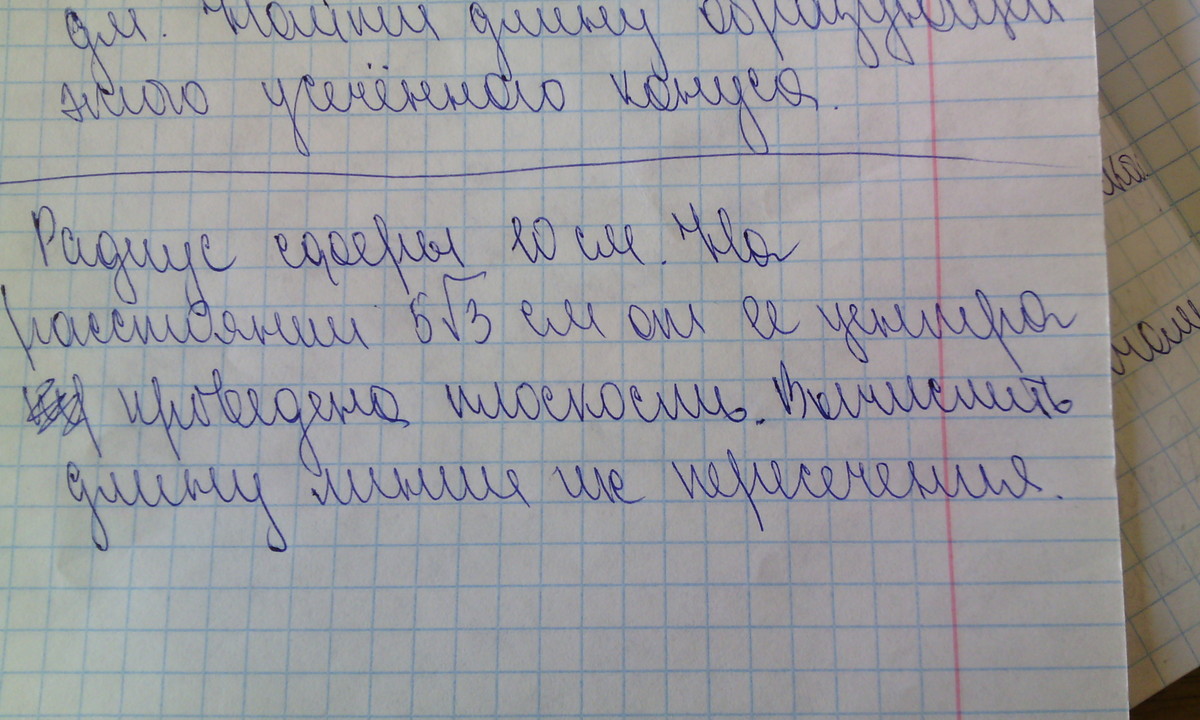 дм. Найти длину образующей
этого усечённого конуса.
Радиус сферы 10 см. На
расстоянии 5√3 см от ее центра
проведена плоскость. Вычислить
длину линии их пересечения.